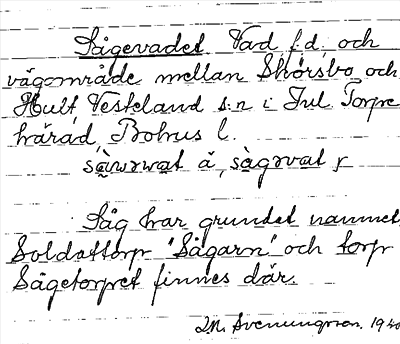 Sågevadet. Vad, f.d. och
vägområde mellan Skörsbo och
Hult, Vesteland s:n i Inl. Torpe
härad, Bohus l.
Såg har grundat namnet.
Soldattorp "Sågarn" och torp
Sågetorpet finnes där.
1940